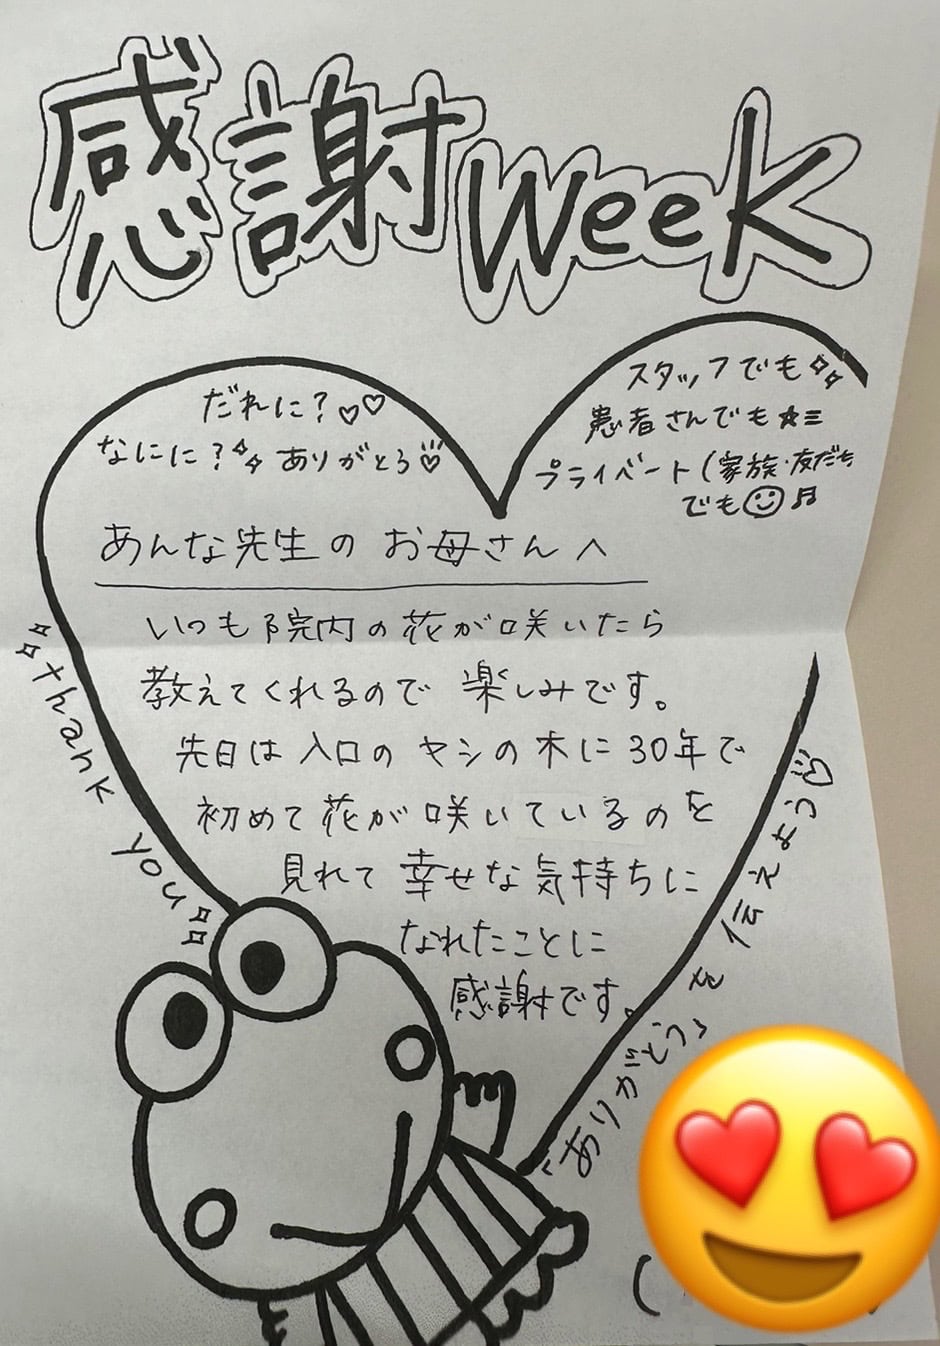 感謝Week
だれに？♡♡
なにに？ ありがとう♡
スタッフでも
患者さんでも★≡
プライベート(家族・友だち
でも☺♬
あんな先生の お母さんへ
いつも院内の花が咲いたら
教えてくれるので 楽しみです。
先日は入口のヤシの木に30年で
初めて花が咲いているのを
見れて 幸せな気持ちに
なれたことに
感謝です。
thank you
「ありがとう」を伝えよう♡
(